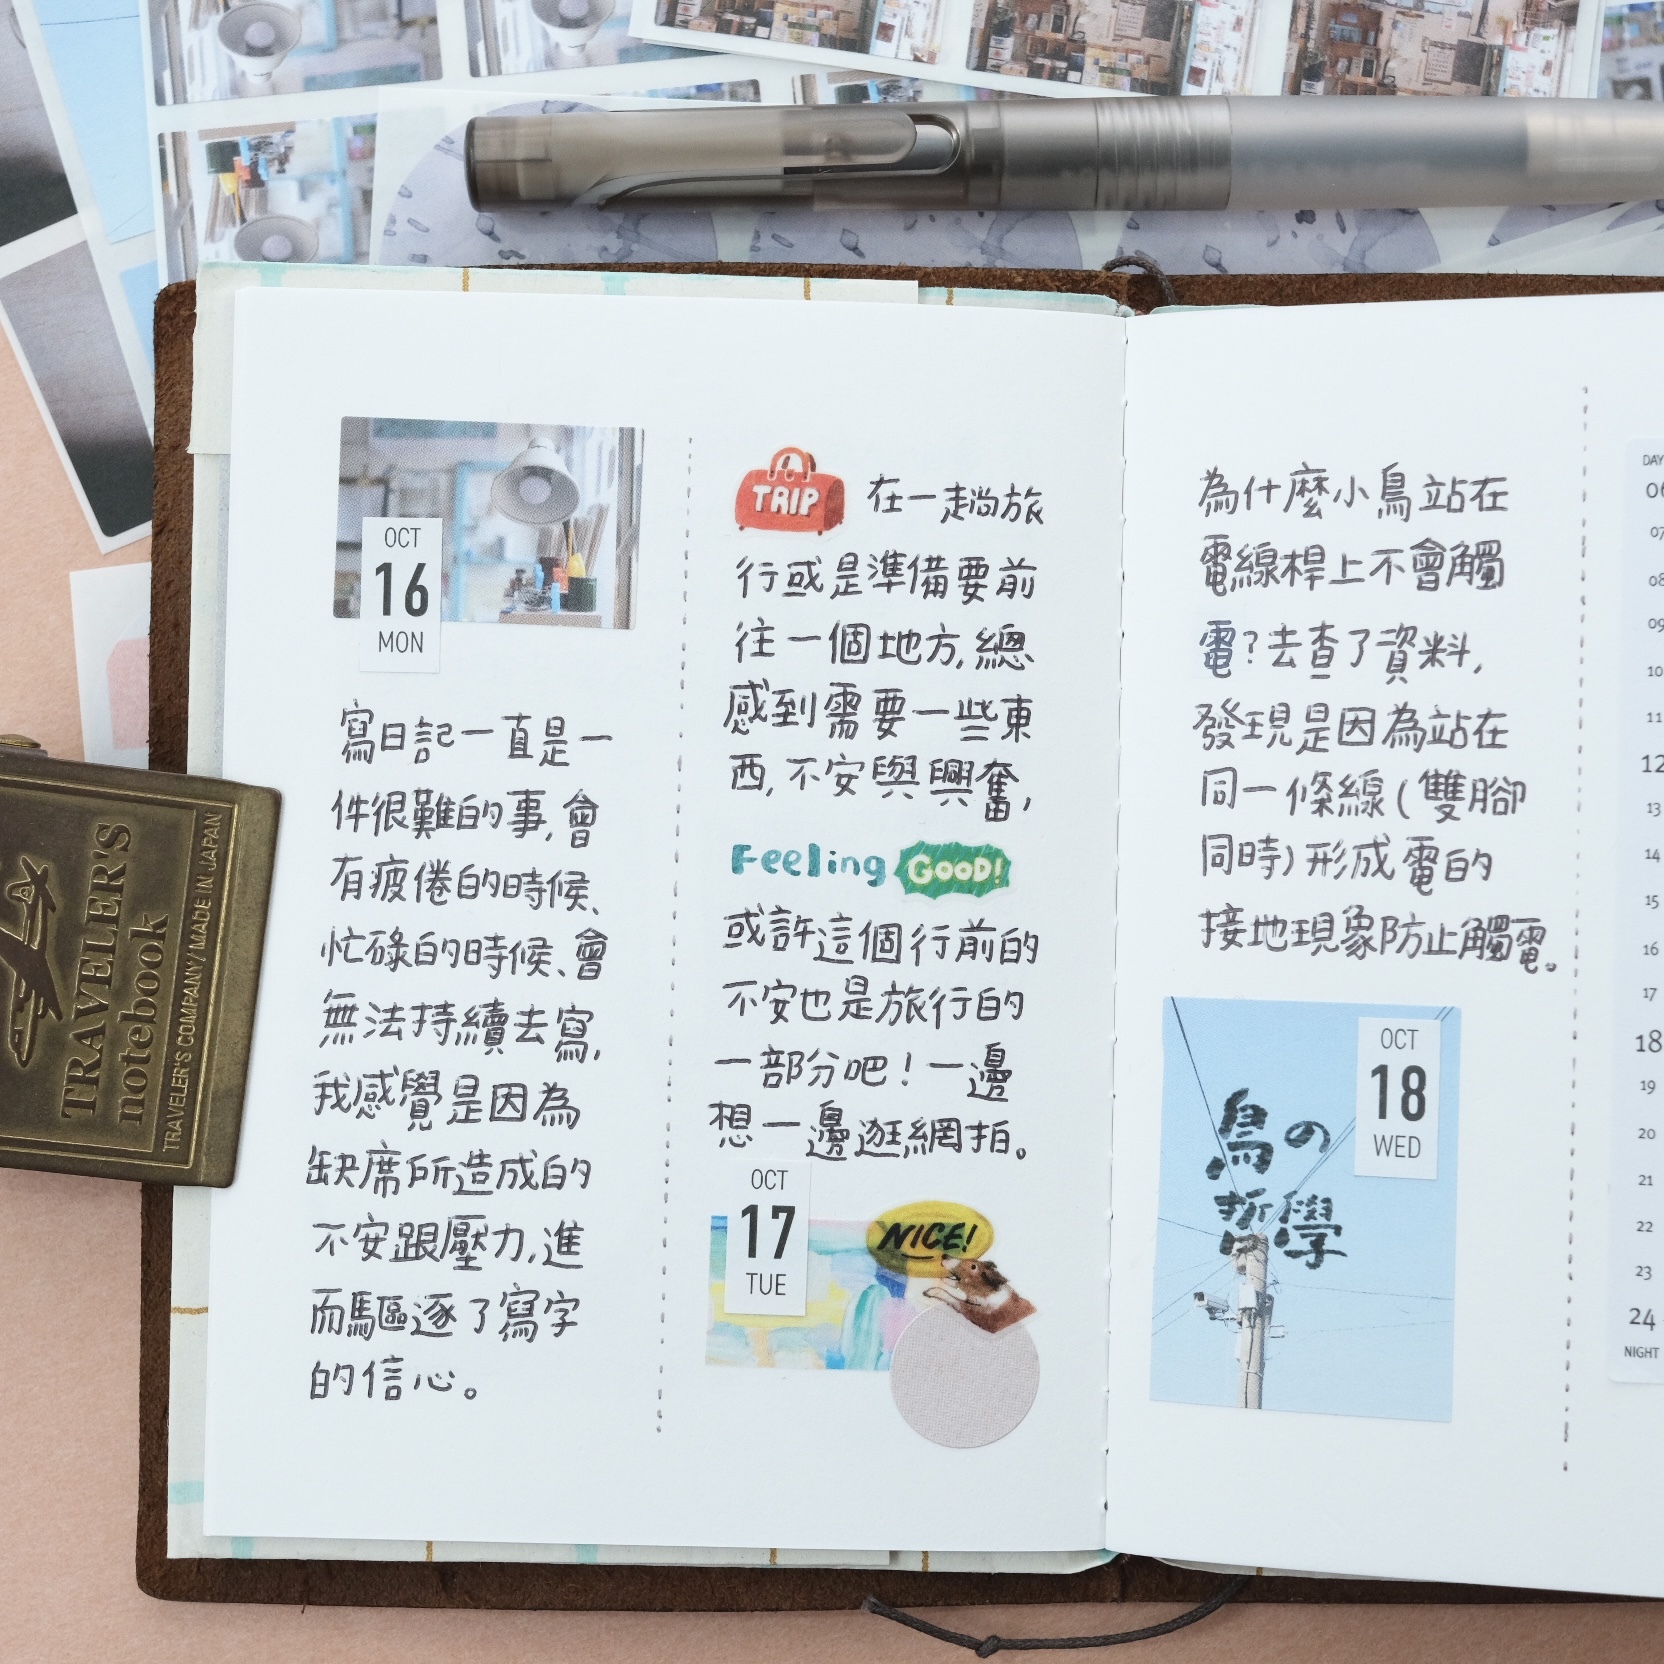 OCT
16
MON
寫日記一直是一
件很難的事,會
有疲倦的時候、
忙碌的時候、會
無法持續去寫,
我感覺是因為
缺席所造成的
不安跟壓力,進
而驅逐了寫字
的信心。
TRIP
在一趟旅
行或是準備要前
往一個地方,總
感到需要一些東
西,不安與興奮,
Feeling GOOD!
或許這個行前的
不安也是旅行的
一部分吧!一邊
想一邊逛網拍。
OCT
17
TUE
NICE!
為什麼小鳥站在
電線桿上不會觸
電?去查了資料,
發現是因為站在
同一條線(雙腳
同時)形成電的
接地現象防止觸電。
OCT
18
WED
鳥の
哲學
DAY
06
07
08
09
10
11
12
13
14
15
16
17
18
19
20
21
22
23
24
NIGHT
TRAVELER'S
notebook
TRAVELER'S COMPANY/MADE IN JAPAN